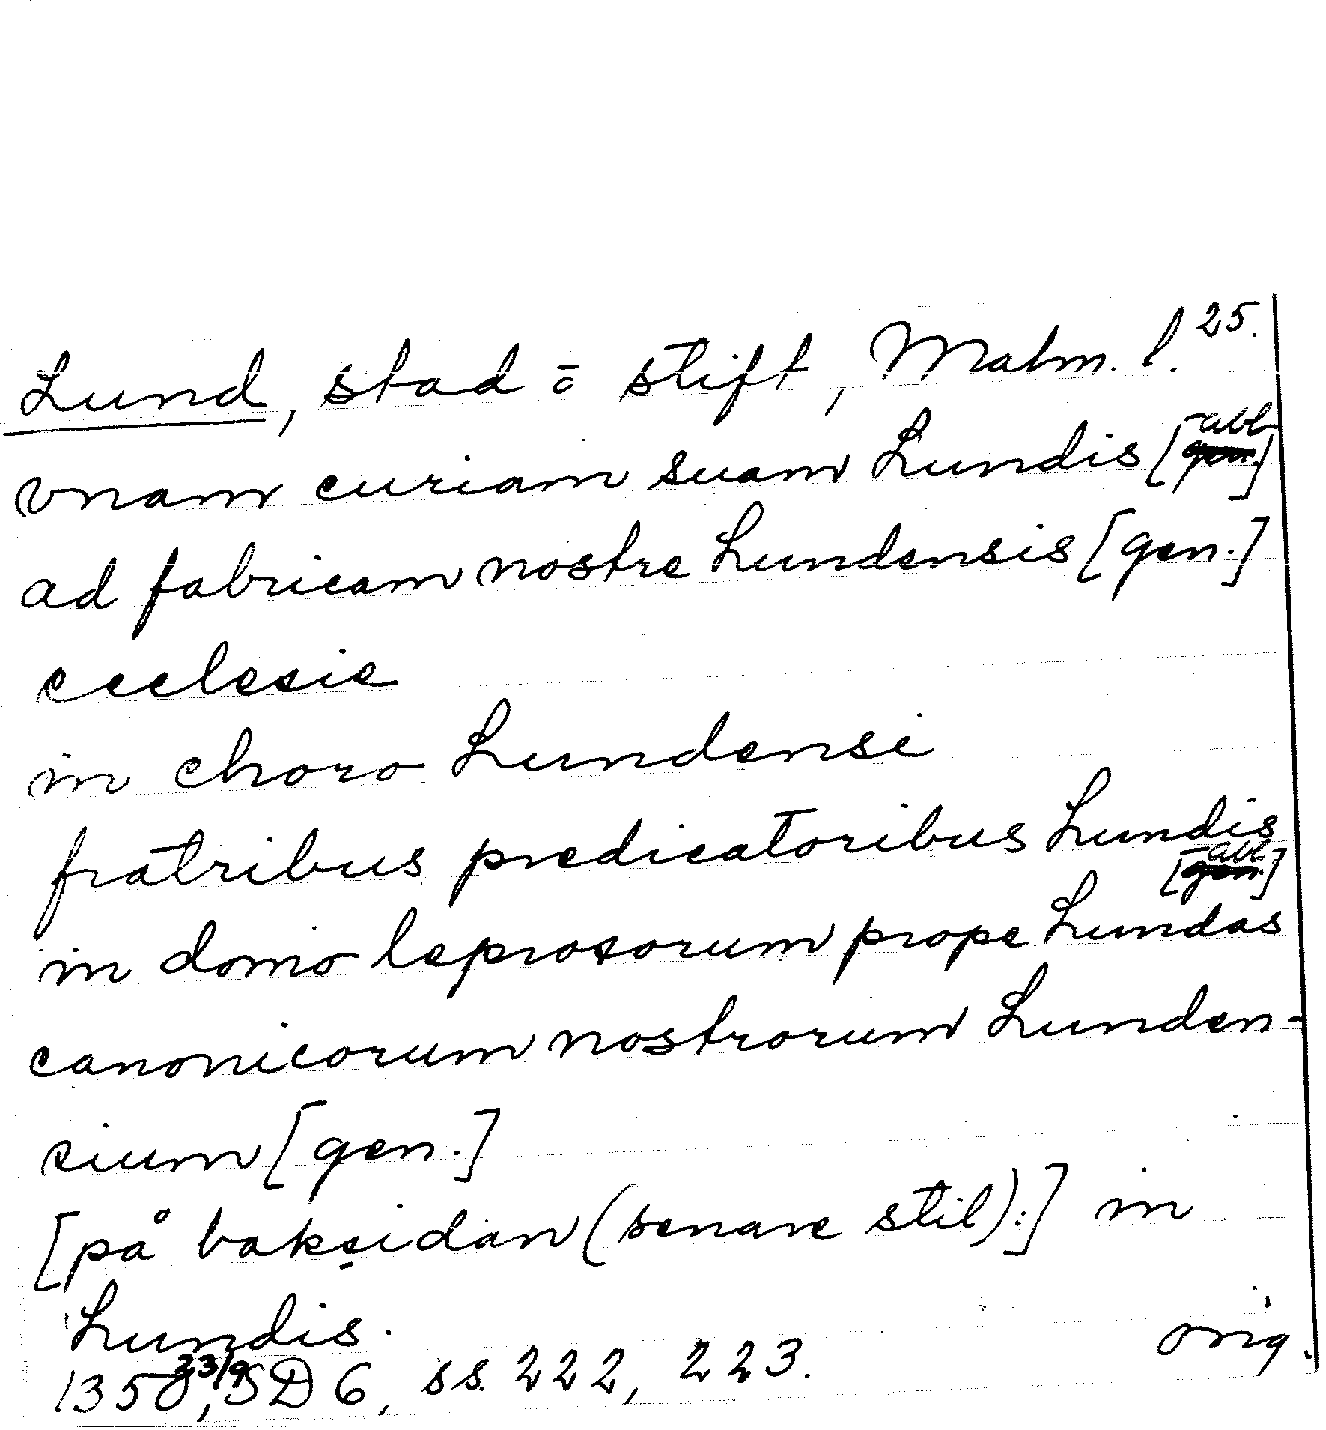 Lund, stad o stift, Malm. l. 25.
vnam curiam suam Lundis [abl.]
ad fabricam nostre Lundensis [gen.]
ecclesie
in choro Lundensi
fratribus predicatoribus Lundis
[abl.]
in domo leprosorum prope Lundas
canonicorum nostrorum Lunden-
sium [gen.]
[på baksidan (senare stil):] in
Lundis.
orig.
1350 23/9, SD 6, ss. 222, 223.